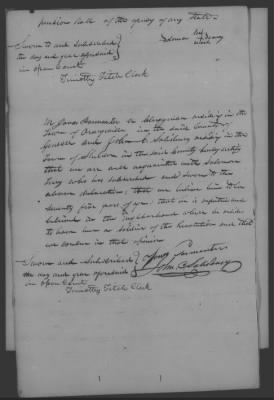 pension roll of the agency of any state
Sworn to and subscribed
the day and year aforesaid
in open Court
Solomon his
mark
Timothy Fitch Clerk
We Jonas Parmenter a Clergyman residing in the
Town of Orangeville in the said County
Genesee and John C. Salsbury residing in the
Town of Sheldon in the said County hereby certify
that we are well acquainted with Solomon
who has subscribed and sworn to the
above declaration, that we believe him to be
seventy five years of age, that he is reputed and
believed in the neighborhood where he resides
to have been a soldier of the Revolution and that
we concur in that opinion
Sworn and Subscribed
the day and year aforesaid
in open Court
Jonas Parmenter
John C. Salsbury
Timothy Fitch Clerk